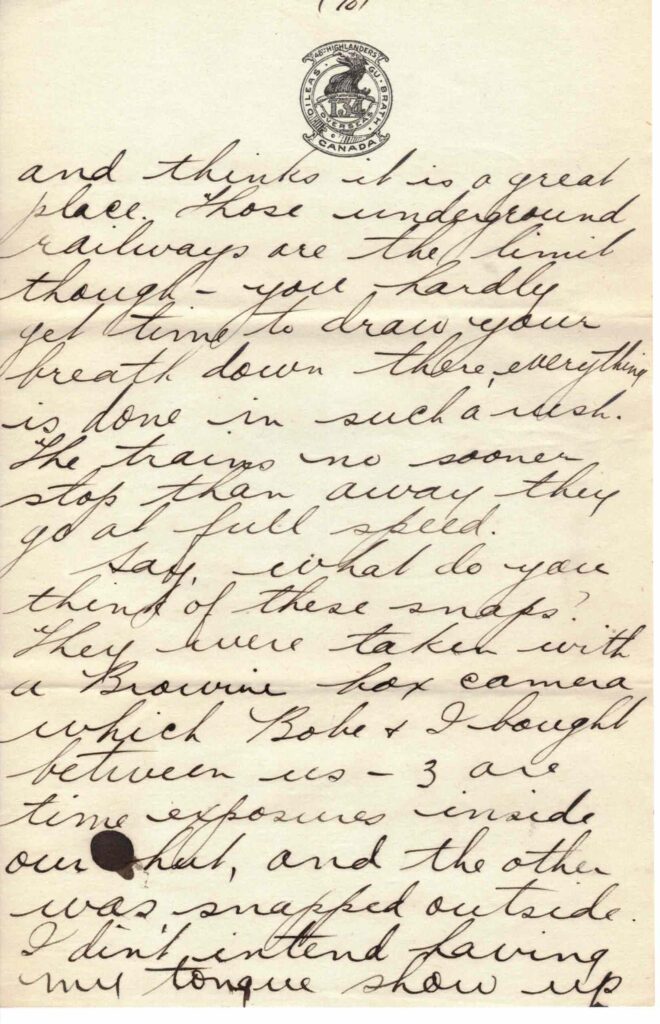 (10)
48TH HIGHLANDERS
DILEAS GU BRATH
134
OVERSEAS
CANADA
and thinks it is a great
place. Those underground
railways are the limit
though – you hardly
get time to draw your
breath down there, everything
is done in such a rush.
The trains no sooner
stop than away they
go at full speed.
Say, what do you
think of these snaps?
They were taken with
a Brownie box camera
which Bobe & I bought
between us – 3 are
time exposures inside
our hut, and the other
was snapped outside.
I din't intend having
my tongue show up